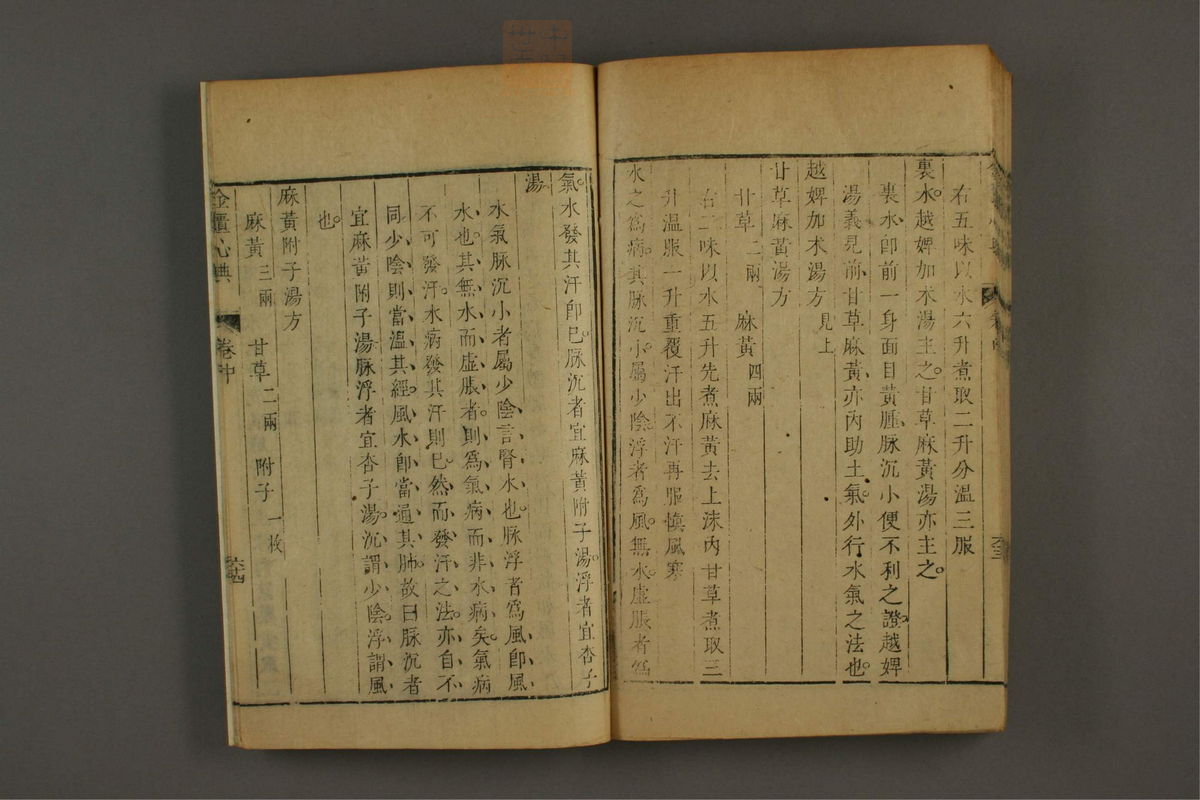 右五味以水六升煮取二升分溫三服
裏水。越婢加术湯主之。甘草麻黃湯亦主之。
裏水、卽前一身面目黃腫、脉沉小便不利之證。越婢
湯義見前、甘草麻黃、亦內助土氣。外行水氣之法也。
越婢加术湯方 見上
甘草麻黃湯方
甘草 二兩 麻黃 四兩
右二味以水五升先煮麻黃去上沫內甘草煮取三
升溫服一升重覆汗出不汗再服愼風寒
水之爲病。其脉沉小屬少陰。浮者爲風。無水虛脹者爲
氣。水發其汗卽已。脉沉者宜麻黃附子湯。浮者宜杏子
湯。
水氣脉沉小者屬少陰、言腎水也。脉浮者爲風、卽風
水也。其無水而虛脹者、則爲氣病而非水病矣。氣病
不可發汗。水病發其汗則已。然而發汗之法、亦自不
同。少陰則當溫其經。風水卽當通其肺。故曰脉沉者
宜麻黃附子湯、脉浮者宜杏子湯。沉謂少陰。浮謂風
也。
麻黃附子湯方
麻黃 三兩 甘草 二兩 附子 一枚
金匱心典 卷中 六十四